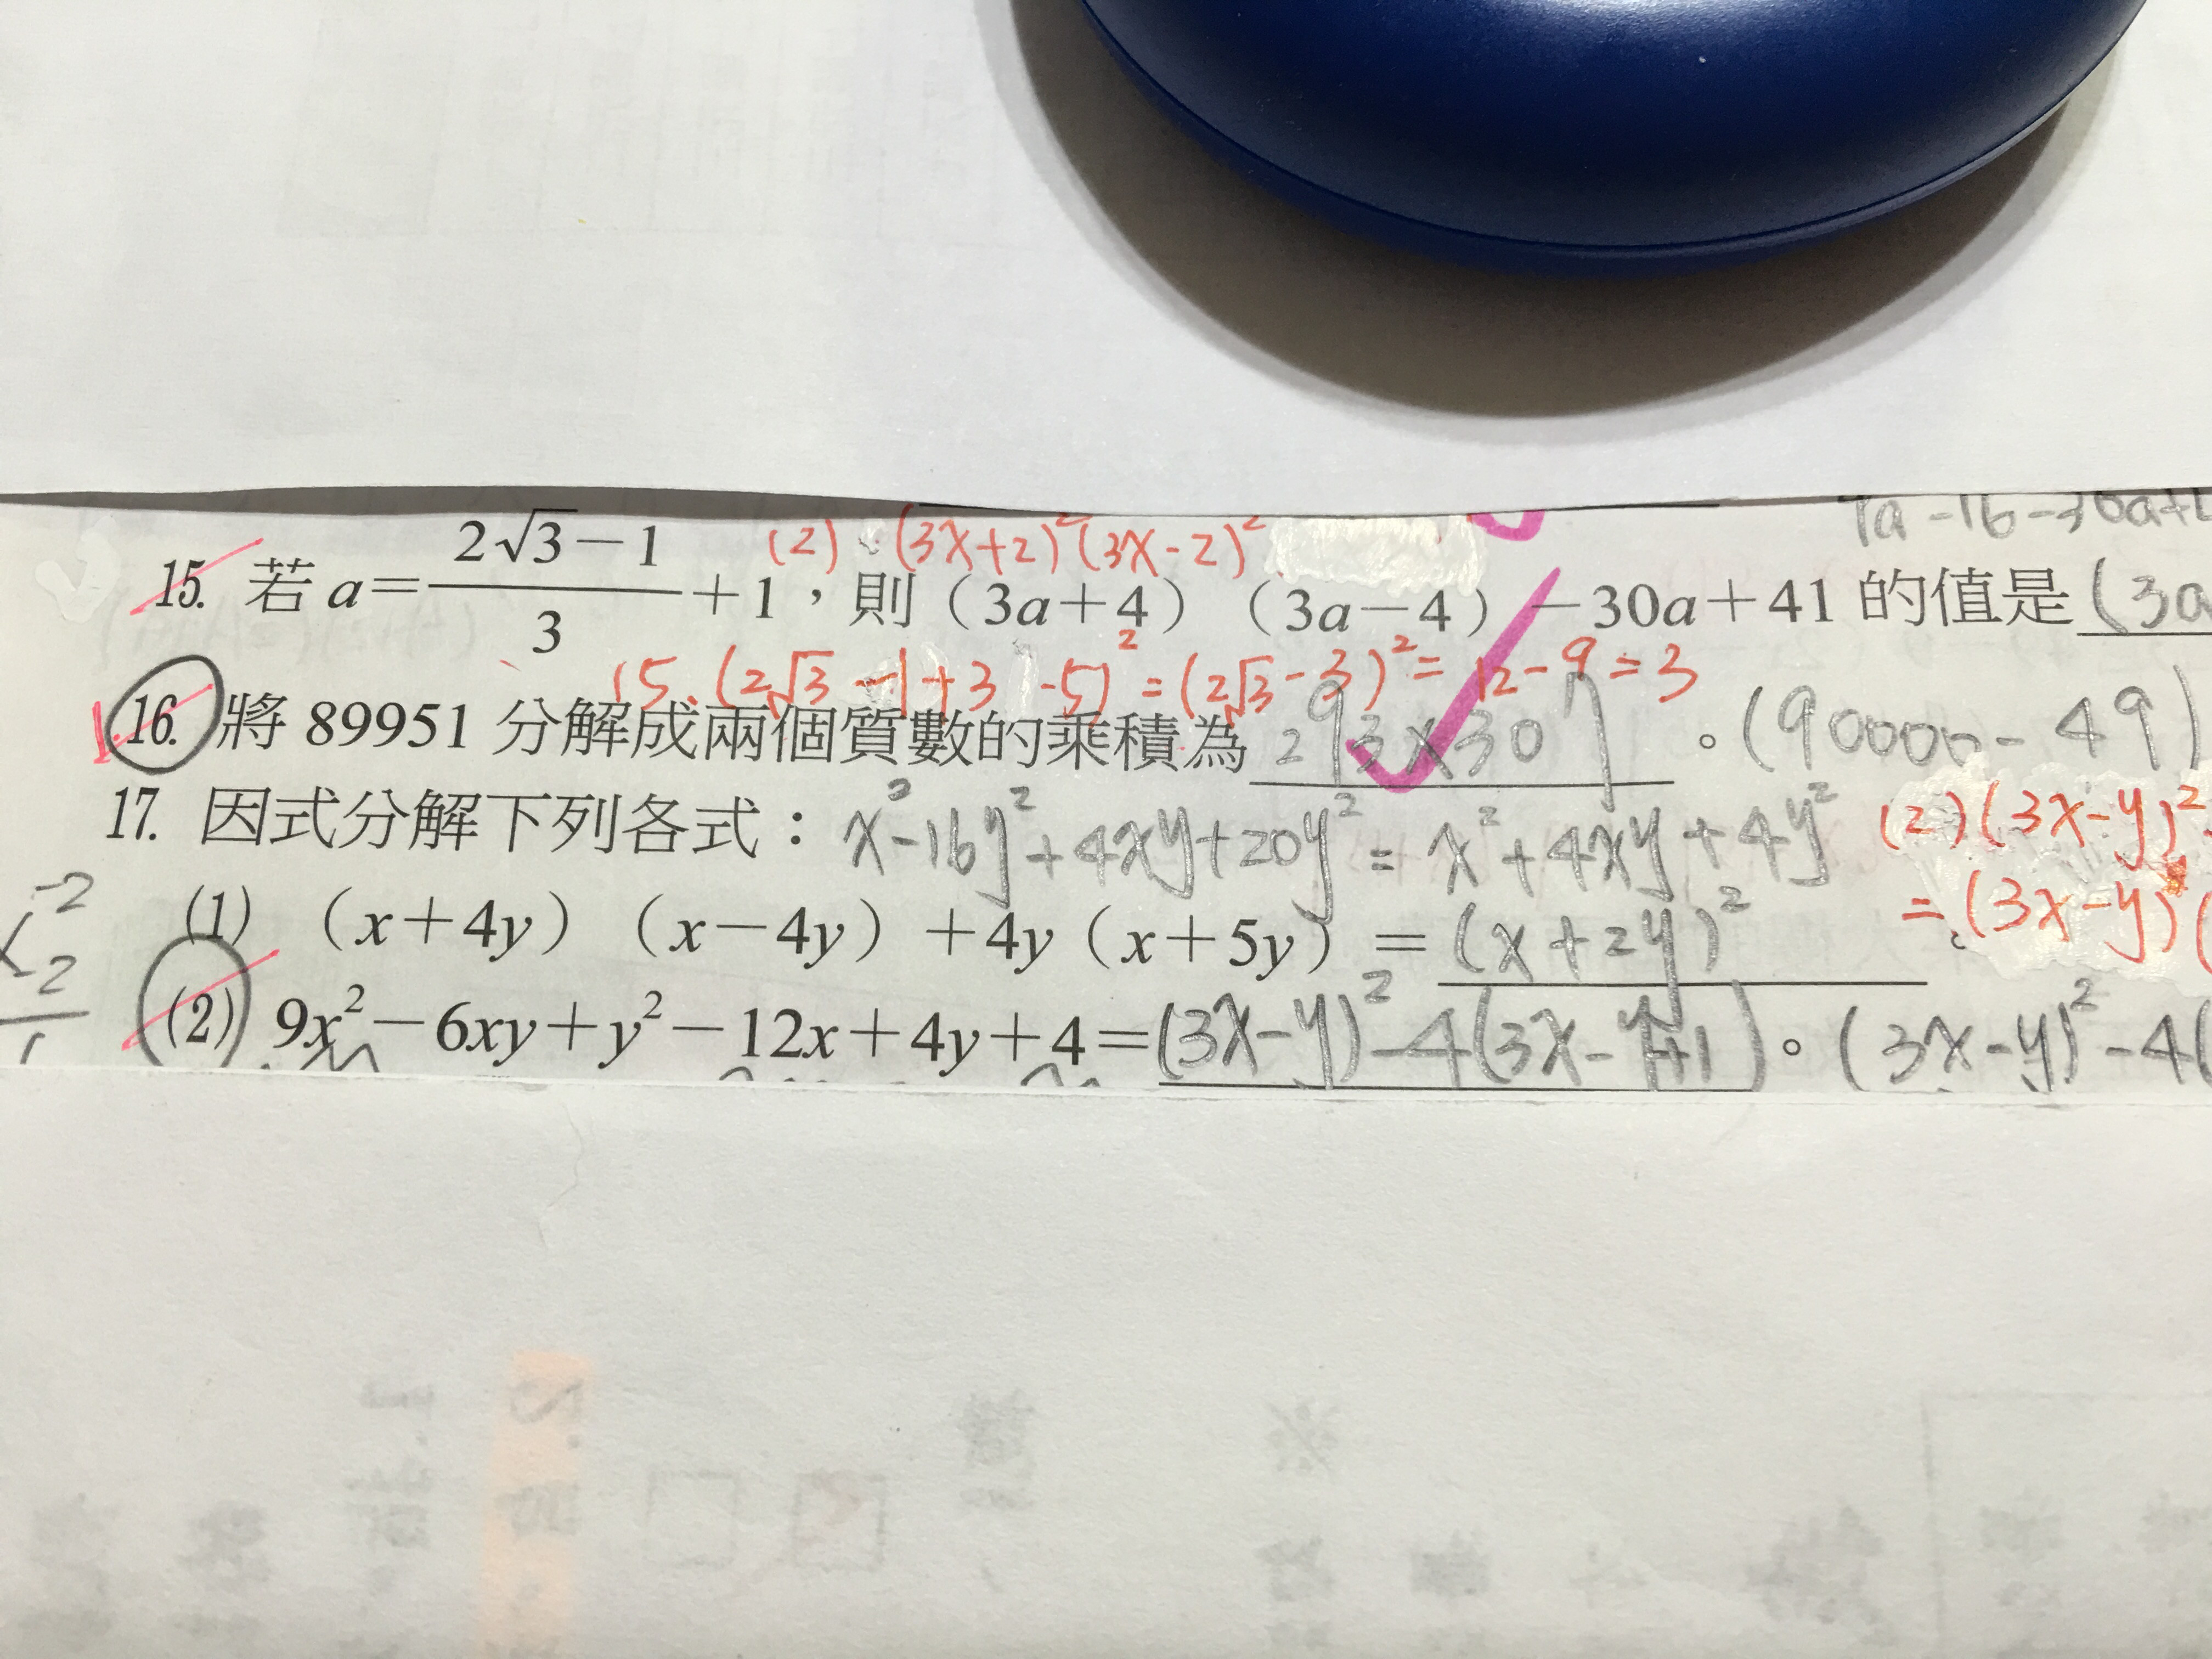 (2) (3x+2)²(3x-2)²
15. 若 a=\frac{2√3-1}{3}+1，則（3a+4）（3a-4）-30a+41 的值是 (3a
15. (2√3-1+3-5)²=(2√3-3)²=12-9=3
16. 將 89951 分解成兩個質數的乘積為 293×307。(90000-49)
17. 因式分解下列各式： x²-16y²+4xy+20y²=x²+4xy+4y²
(2)(3x-y)²
(1) （x+4y）（x-4y）+4y（x+5y）=(x+2y)²
=(3x-y)(
(2) 9x²-6xy+y²-12x+4y+4=(3x-y)²-4(3x-y+1)。(3x-y)²-4(